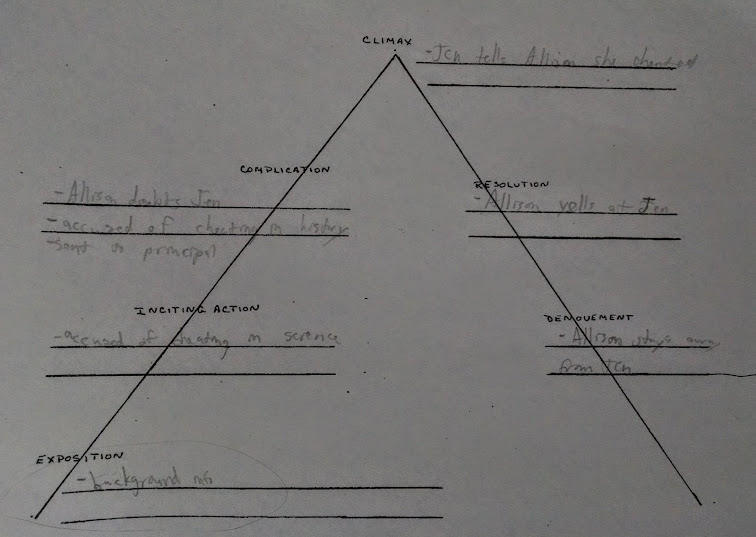 CLIMAX
- Jen tells Allison she cheated
COMPLICATION
- Allison doubts Jen
- accused of cheating in history
- sent to principal
RESOLUTION
- Allison yells at Jen
INCITING ACTION
- accused of cheating in science
DENOUEMENT
- Allison stays away
from Jen
EXPOSITION
- background info